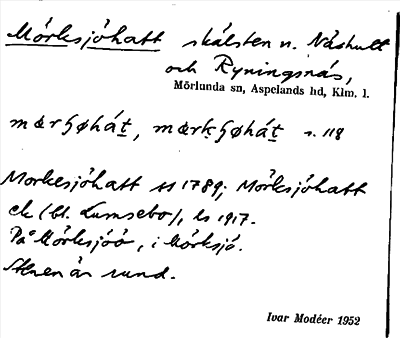 Mörksjöhatt skälsten n. Näshult
och Ryningsnäs,
Mörlunda sn, Aspelands hd, Klm. l.
s. 118
Morkesjöhatt ss 1789; Mörksjöhatt
ek (bl. Lumsebo), ls 1917.
På Mörksjöö, i Mörksjö.
Stenen är rund.
Ivar Modéer 1952